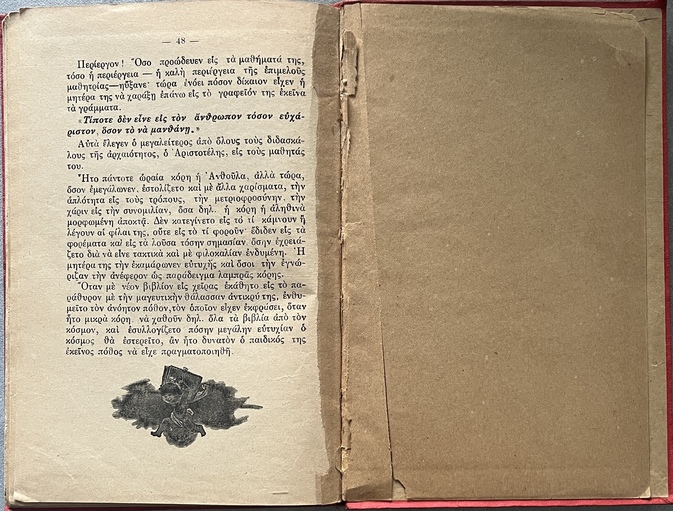 — 48 —
Περίεργον! Ὅσο προώδευεν εἰς τὰ μαθήματά της,
τόσο ἡ περιέργεια — ἡ καλὴ περιέργεια τῆς ἐπιμελοῦς
μαθητρίας—ηὔξανε· τώρα ἐνόει πόσον δίκαιον εἶχεν ἡ
μητέρα της νὰ χαράξῃ ἐπάνω εἰς τὸ γραφεῖόν της ἐκεῖνα
τὰ γράμματα.
«Τίποτε δὲν εἶνε εἰς τὸν ἄνθρωπον τόσον εὐχά-
ριστον, ὅσον τὸ νὰ μανθάνῃ.»
Αὐτὰ ἔλεγεν ὁ μεγαλείτερος ἀπὸ ὅλους τοὺς διδασκά-
λους τῆς ἀρχαιότητος, ὁ Ἀριστοτέλης, εἰς τοὺς μαθητάς
του.
Ἦτο πάντοτε ὡραία κόρη ἡ Ἀνθοῦλα, ἀλλὰ τώρα,
ὅσον ἐμεγάλωνεν, ἐστολίζετο καὶ μὲ ἄλλα χαρίσματα, τὴν
ἁπλότητα εἰς τοὺς τρόπους, τὴν μετριοφροσύνην, τὴν
χάριν εἰς τὴν συνομιλίαν, ὅσα δηλ. ἡ κόρη ἡ ἀληθινὰ
μορφωμένη ἀποκτᾷ. Δὲν κατεγίνετο εἰς τὸ τί κάμνουν ἢ
λέγουν αἱ φίλαι της, οὔτε εἰς τὸ τί φοροῦν· ἔδιδεν εἰς τὰ
φορέματα καὶ εἰς τὰ λοῦσα τόσην σημασίαν, ὅσην ἐχρειά-
ζετο διὰ νὰ εἶνε τακτικὰ καὶ μὲ φιλοκαλίαν ἐνδυμένη. Ἡ
μητέρα της τὴν ἐκαμάρωνεν εὐτυχὴς καὶ ὅσοι τὴν ἐγνώ-
ριζαν τὴν ἀνέφερον ὡς παράδειγμα λαμπρᾶς κόρης.
Ὅταν μὲ νέον βιβλίον εἰς χεῖρας ἐκάθητο εἰς τὸ πα-
ράθυρον μὲ τὴν μαγευτικὴν θάλασσαν ἀντικρύ της, ἐνθυ-
μεῖτο τὸν ἀνόητον πόθον, τὸν ὁποῖον εἶχεν ἐκφράσει, ὅταν
ἦτο μικρὰ κόρη, νὰ χαθοῦν δηλ. ὅλα τὰ βιβλία ἀπὸ τὸν
κόσμον, καὶ ἐσυλλογίζετο πόσην μεγάλην εὐτυχίαν ὁ
κόσμος θὰ ἐστερεῖτο, ἂν ἦτο δυνατὸν ὁ παιδικός της
ἐκεῖνος πόθος νὰ εἶχε πραγματοποιηθῆ.